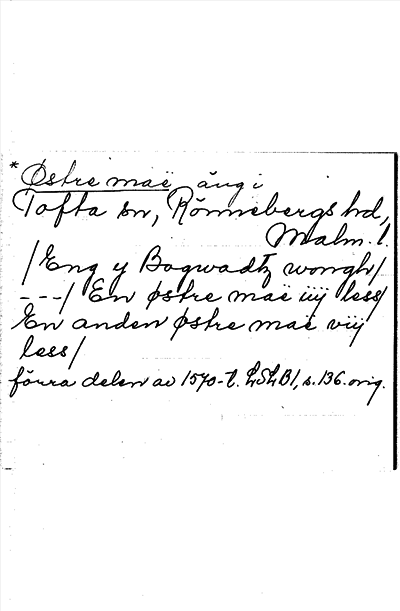 * Østre maë, äng i
Tofta sn, Rönnebergs hd,
Malm. l.
/Eng y Bogwadtz wongh/
---/ En østre maë iiij less/
En anden østre maë viij
less/
förra delen av 1570-t. LSLB1, s. 136. orig.